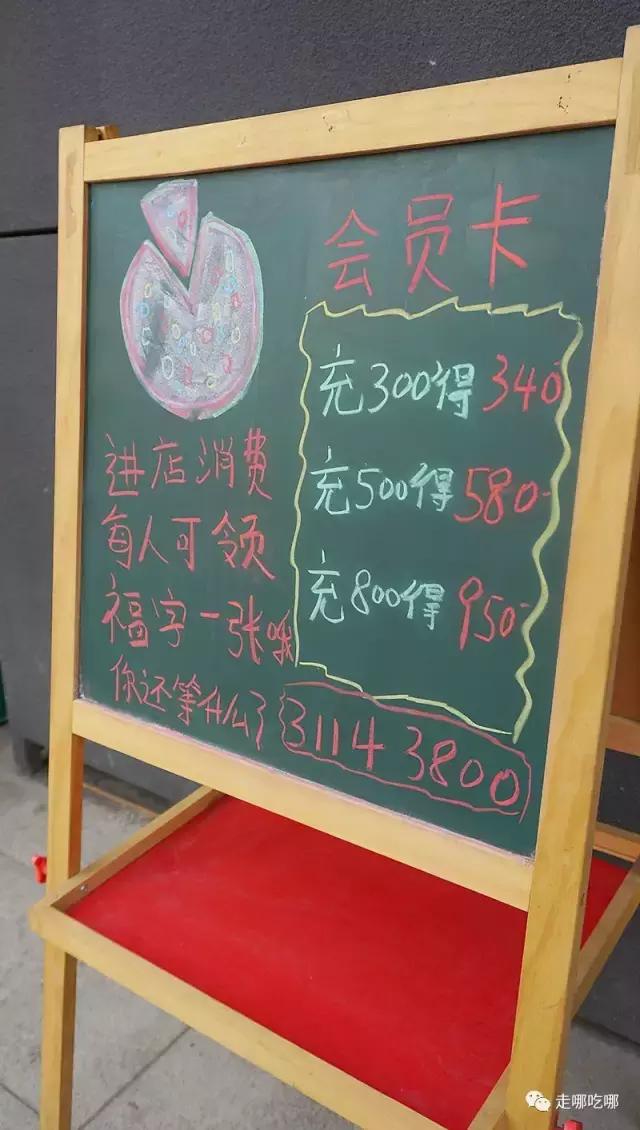 会员卡
充300得340
充500得580
充800得950
进店消费
每人可领
福字一张哦
你还等什么?
31143800
走哪吃哪